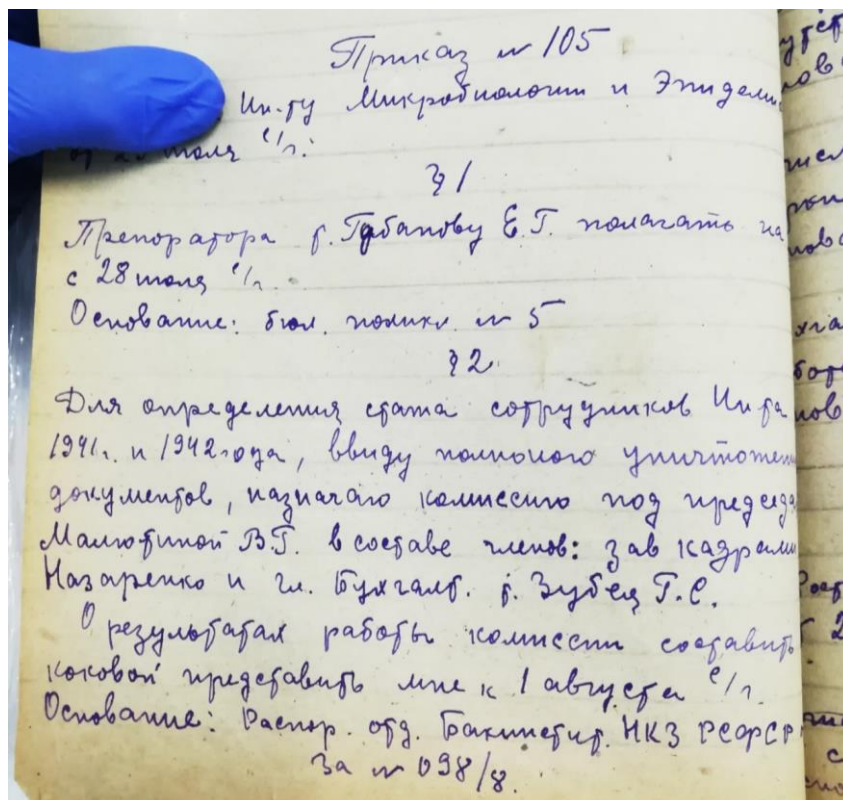 Приказ № 105
Ин-ту Микробиологии и Эпидеми
июля с/г.
§ 1
Препоратора г. Губанову Е.Г. полагать на
с 28 июля с/г
Основание: бюл. поликл. № 5
§ 2
Для определения стажа сотрудников Ин-та
1941г. и 1942 года, ввиду полного уничтожен
документов, назначаю комиссию под председ
Малютиной В.Г. в составе членов: зав кадрами
Назаренко и гл. Бухгалт. г. Зубец Г.С.
О результатах работы комиссии составить
коковой представить мне к 1 августа с/г
Основание: Распор. отд. Бакинстит. НКЗ РСФСР
За № 098/8.